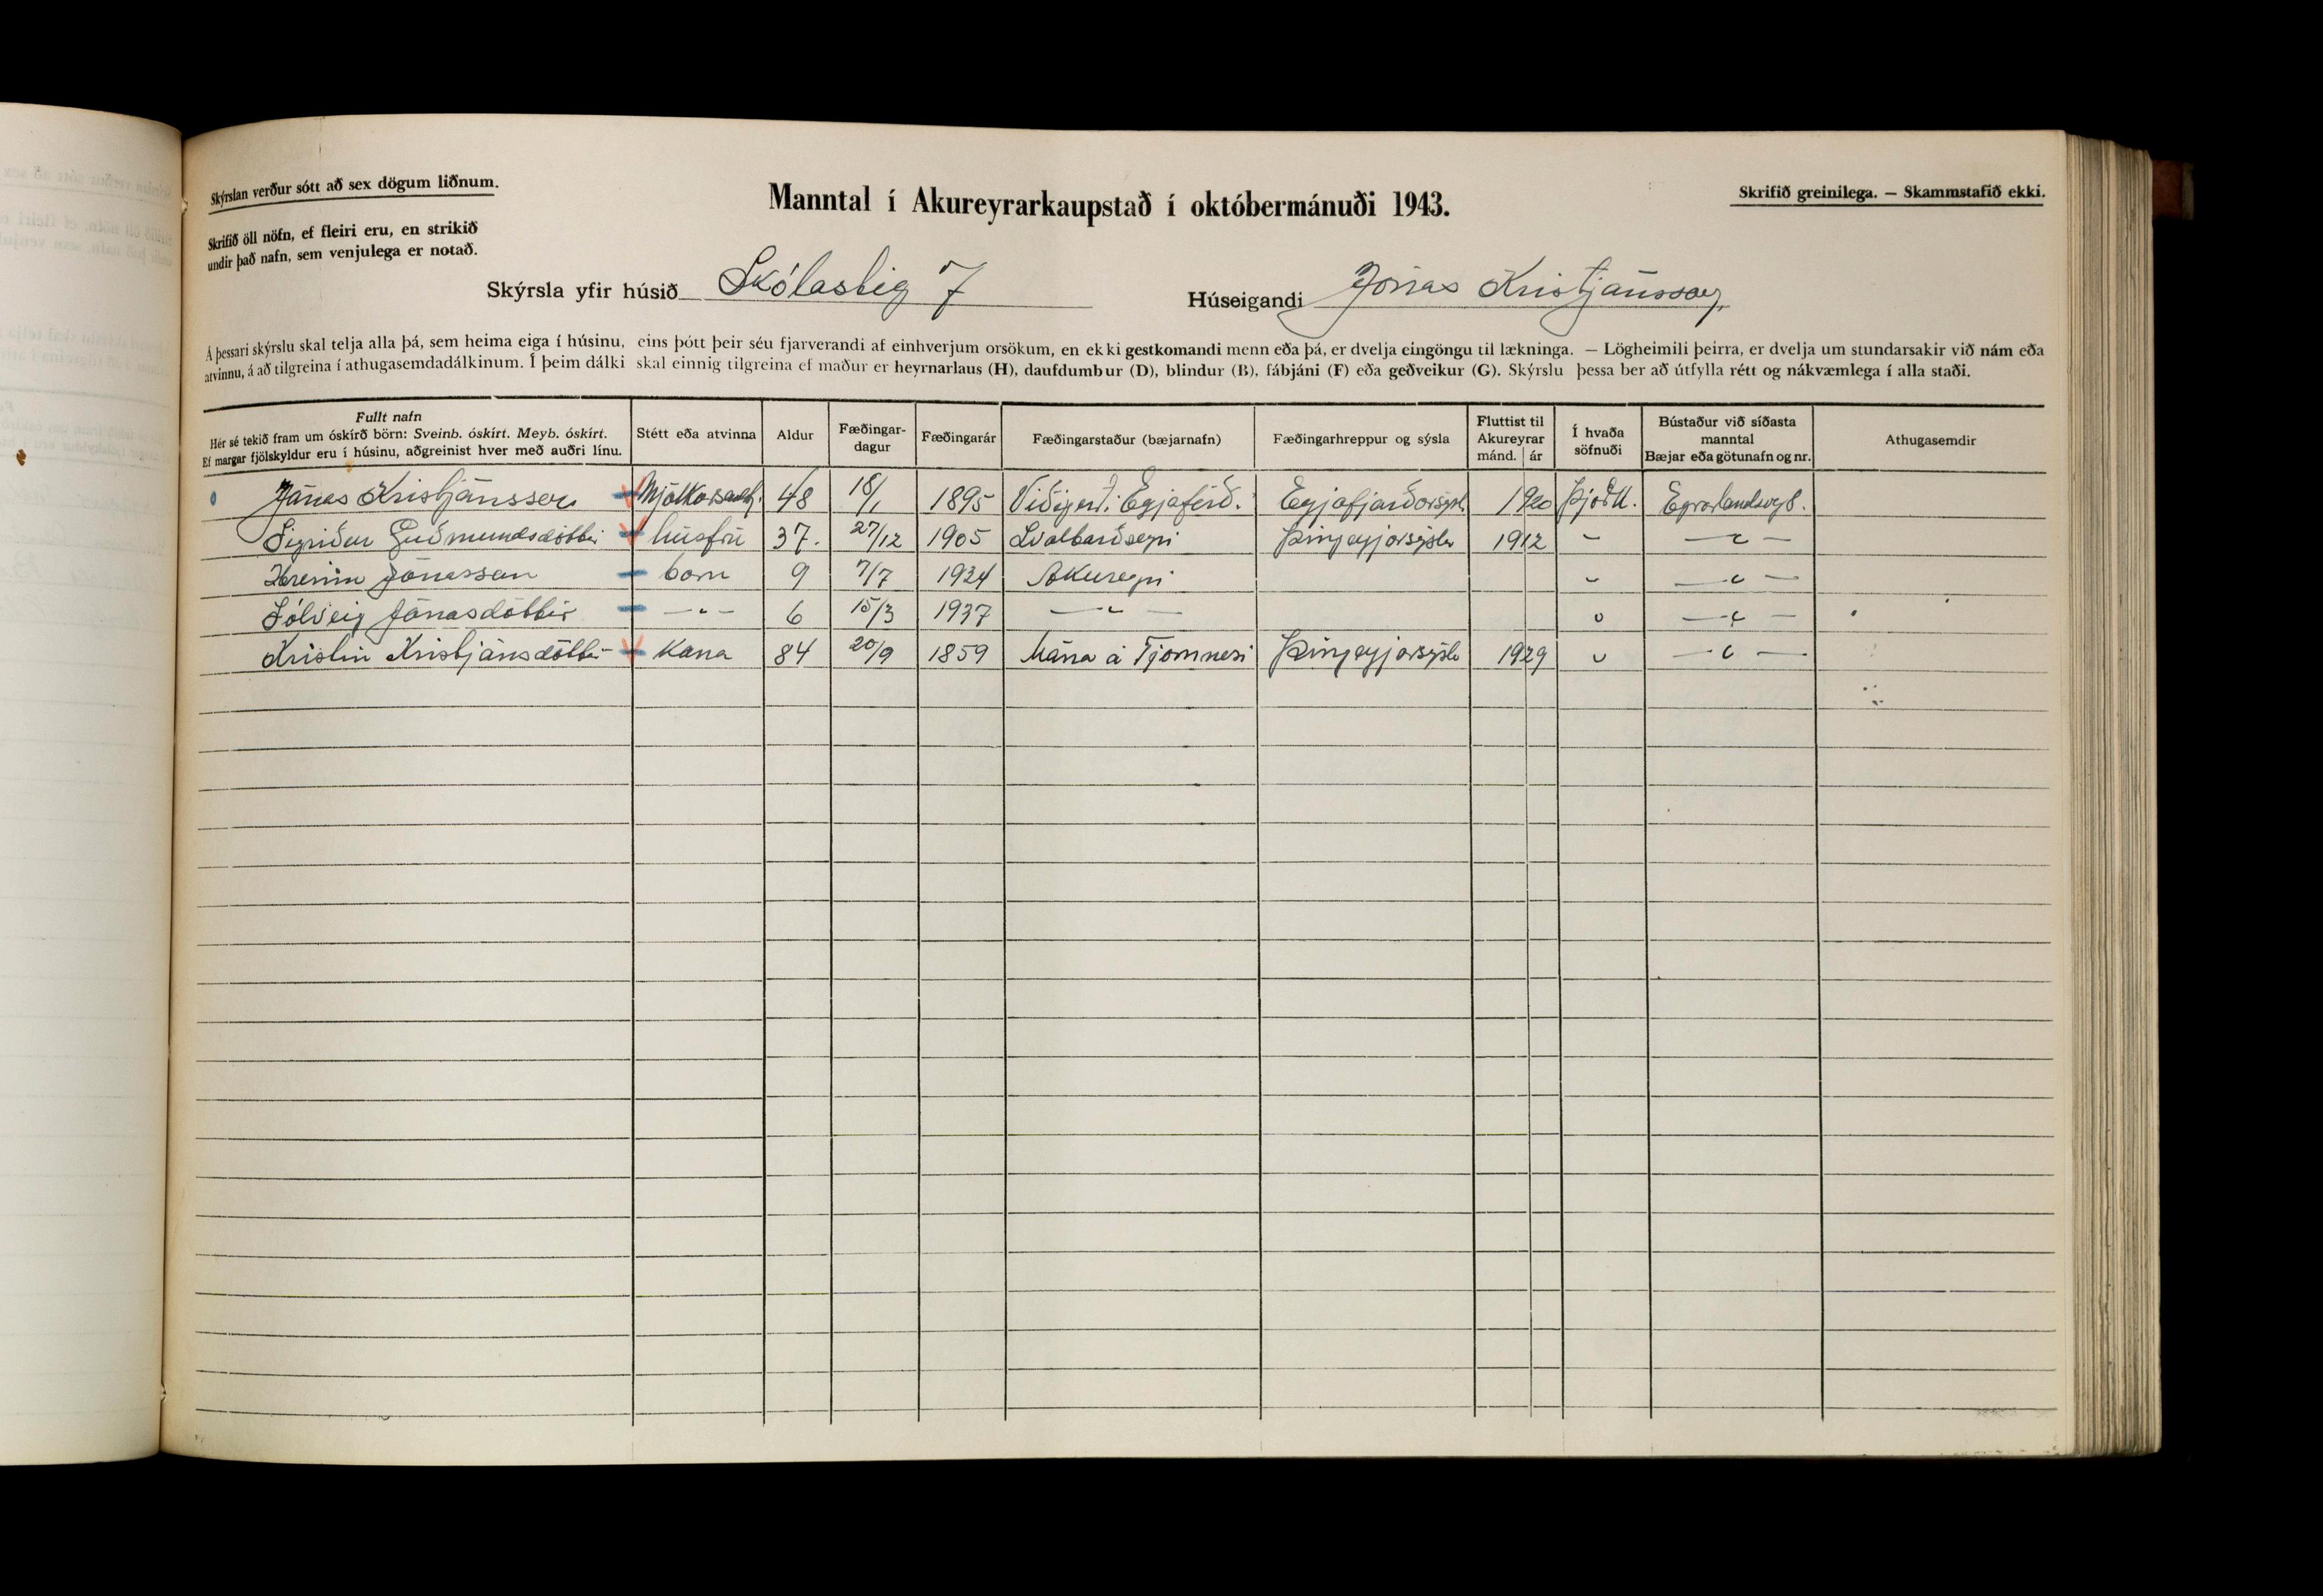 Skýrslan verður sótt að sex dögum liðnum.
Skrifið öll nöfn, ef fleiri eru, en strikið
undir það nafn, sem venjulega er notað.
Manntal í Akureyrarkaupstað í októbermánuði 1943.
Skrifið greinilega. — Skammstafið ekki.
Skýrsla yfir húsið Skólastig 7 Húseigandi Jónas Kristjánsson
Á þessari skýrslu skal telja alla þá, sem heima eiga í húsinu, eins þótt þeir séu fjarverandi af einhverjum orsökum, en ekki gestkomandi menn eða þá, er dvelja eingöngu til lækninga. — Lögheimili þeirra, er dvelja um stundarsakir við nám eða
atvinnu, á að tilgreina í athugasemdadálkinum. Í þeim dálki skal einnig tilgreina ef maður er heyrnarlaus (H), daufdumbur (D), blindur (B), fábjáni (F) eða geðveikur (G). Skýrslu þessa ber að útfylla rétt og nákvæmlega í alla staði.
Fullt nafn
Hér sé tekið fram um óskírð börn: Sveinb. óskírt. Meyb. óskírt.
Ef margar fjölskyldur eru í húsinu, aðgreinist hver með auðri línu.
Stétt eða atvinna
Aldur
Fæðingar-
dagur
Fæðingarár
Fæðingarstaður (bæjarnafn)
Fæðingarhreppur og sýsla
Fluttist til
Akureyrar
mánd. ár
Í hvaða
söfnuði
Bústaður við síðasta
manntal
Bæjar eða götunafn og nr.
Athugasemdir
Jónas Kristjánsson 48 18/1 1895 Eyjafjarðarsýsl 1920 Þjóðk.
Sigríður Guðmundsdóttir húsfrú 37. 27/12 1905 Svalbarðseyri Þingeyjarsýsla 1912 " — " —
Hreinn Jónasson börn 9 7/7 1934 Akureyri " — " —
Sólveig Jónasdóttir — " — 6 15/3 1937 — " — " — " —
Kristín Kristjánsdóttir Kona 84 20/9 1859 Mána á Tjörnesi Þingeyjarsýsla 1929 " — " —